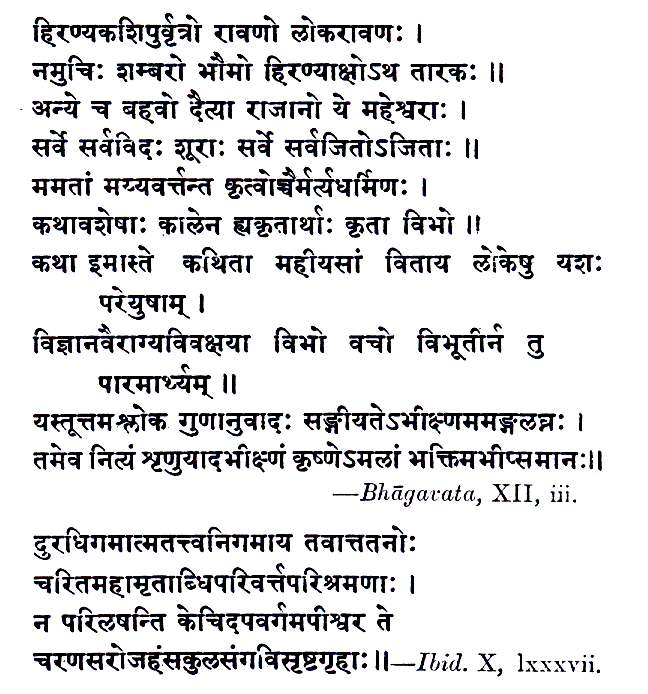 हिरण्यकशिपुर्वृत्रो रावणो लोकरावणः ।
नमुचिः शम्बरो भौमो हिरण्याक्षोऽथ तारकः ॥
अन्ये च बहवो दैत्या राजानो ये महेश्वराः ।
सर्वे सर्वविदः शूराः सर्वे सर्वजितोऽजिताः ॥
ममतां मय्यवर्त्तन्त कृत्वोच्चैर्मर्त्यधर्मिणः ।
कथावशेषाः कालेन ह्यकृतार्थाः कृता विभो ॥
कथा इमास्ते कथिता महीयसां विताय लोकेषु यशः
परेयुषाम् ।
विज्ञानवैराग्यविवक्षया विभो वचो विभूतीर्न तु
पारमार्थ्यम् ॥
यस्तूत्तमश्लोक गुणानुवादः सङ्गीयतेऽभीक्ष्णममङ्गलघ्नः ।
तमेव नित्यं शृणुयादभीक्ष्णं कृष्णेऽमलां भक्तिमभीप्समानः॥
—Bhāgavata, XII, iii.
दुरधिगमात्मतत्त्वनिगमाय तवात्ततनोः
चरितमहामृताब्धिपरिवर्त्तपरिश्रमणाः ।
न परिलषन्ति केचिदपवर्गमपीश्वर ते
चरणसरोजहंसकुलसंगविसृष्टगृहाः॥—Ibid. X, lxxxvii.